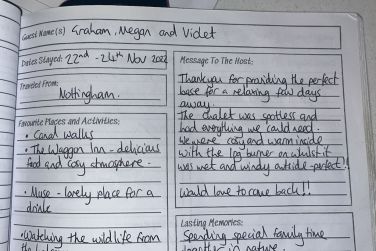 Guest Name(s) Graham, Megan and Violet
Dates Stayed: 22nd - 24th Nov 2022
Traveled From:
Nottingham.
Favourite Places and Activities:
• Canal walks
• The Waggon Inn - delicious
food and cosy atmosphere.
• Muse - lovely place for a
drink
• Watching the wildlife from
Message To The Host:
Thankyou for providing the perfect
base for a relaxing few days
away.
The chalet was spotless and
had everything we could need.
We were cosy and warm inside
with the log burner on whilst it
was wet and windy outside - perfect!!
Would love to come back!!
Lasting Memories:
Spending special family time
together in nature.